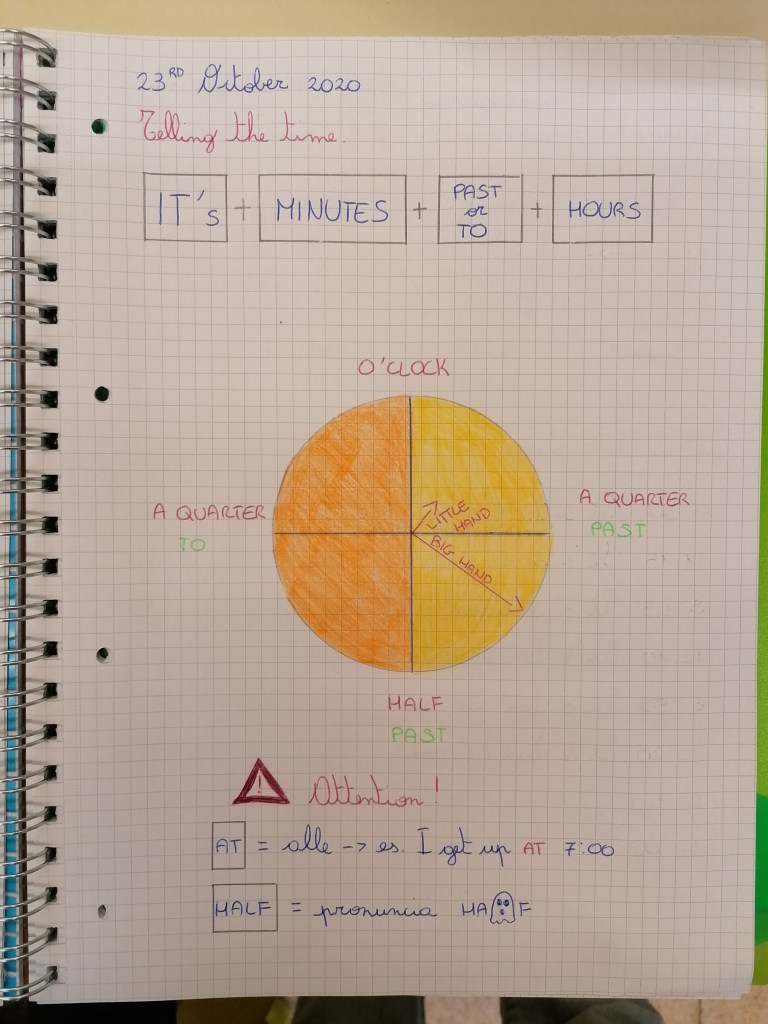 23RD October 2020
Telling the time.
IT's + MINUTES + PAST or TO + HOURS
O'CLOCK
A QUARTER TO
A QUARTER PAST
LITTLE HAND
BIG HAND
HALF
PAST
! Attention!
AT = alle -> es. I get up AT 7:00
HALF = pronuncia HA F